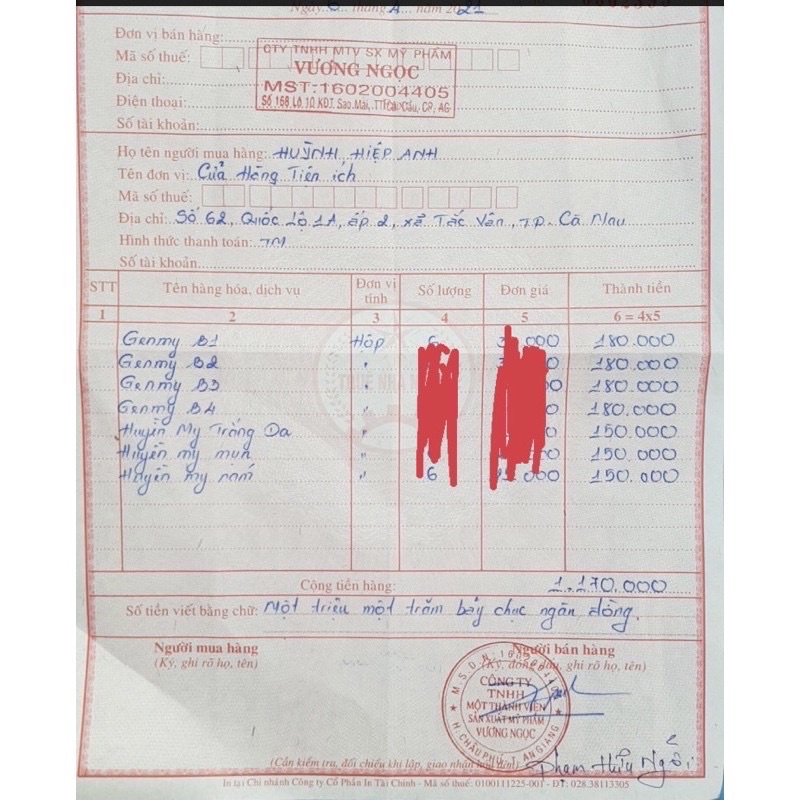 Ngày 6 tháng 4 năm 2021
Đơn vị bán hàng:
Mã số thuế:
Địa chỉ:
Điện thoại:
Số tài khoản:
CTY TNHH MTV SX MỸ PHẨM
VƯƠNG NGỌC
MST:1602004405
Số 168 Lô 10 KDT. Sao Mai, TT Cái Dầu, CP, AG
Họ tên người mua hàng: HUỲNH HIỆP ANH
Tên đơn vị: Cửa Hàng Tiện ích
Mã số thuế:
Địa chỉ: Số 62, Quốc Lộ 1A, ấp 2, xã Tắc Vân, TP. Cà Mau
Hình thức thanh toán: TM
Số tài khoản:
STT Tên hàng hóa, dịch vụ Đơn vị tính Số lượng Đơn giá Thành tiền
1 2 3 4 5 6 = 4x5
Genmy B1 Hộp 6 000 180.000
Genmy B2 " 000 180.000
Genmy B3 " 00 180.000
Genmy B4 " 0 180.000
Huyền My Trắng Da " 0 150.000
Huyền my mụn " 0 150.000
Huyền my nám " 6 000 150.000
Cộng tiền hàng: 1.170.000
Số tiền viết bằng chữ: Một triệu một trăm bảy chục ngàn đồng.
Người mua hàng Người bán hàng
(Ký, ghi rõ họ, tên) (Ký, đóng dấu, ghi rõ họ, tên)
CÔNG TY
TNHH
MỘT THÀNH VIÊN
SẢN XUẤT MỸ PHẨM
VƯƠNG NGỌC
H. CHÂU PHÚ - T. AN GIANG
Phạm Hữu Ngôi
(Cần kiểm tra, đối chiếu khi lập, giao nhận hóa đơn)
In tại Chi nhánh Công ty Cổ Phần In Tài Chính - Mã số thuế: 0100111225-001 - ĐT: 028.38113305